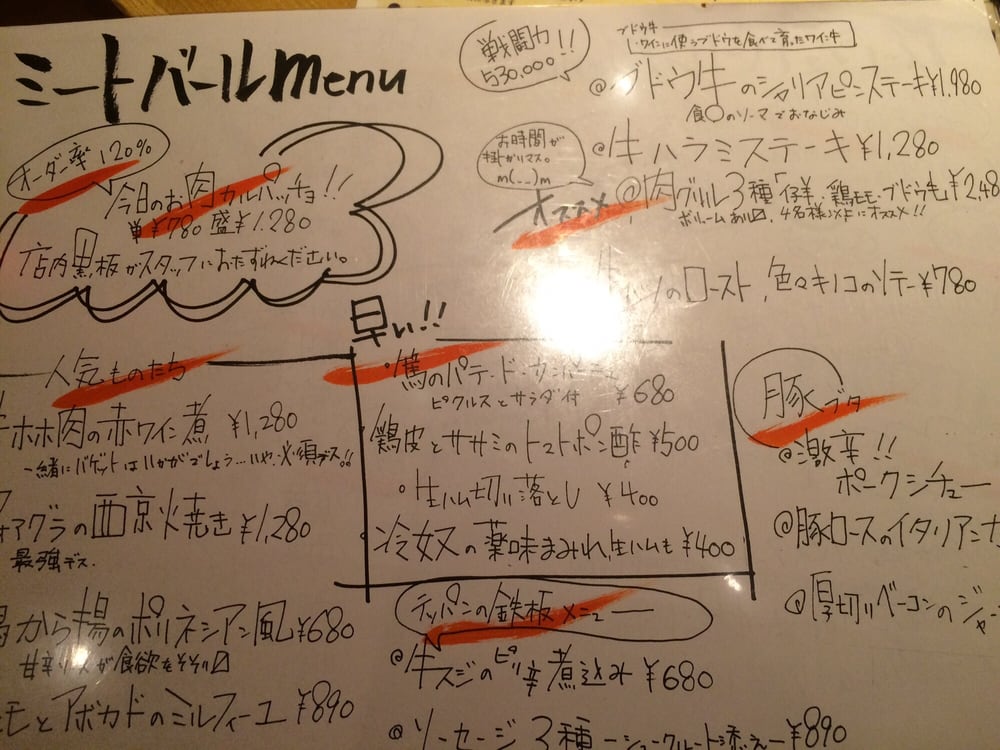 ミートバールmenu
オーダー率120%
今日のお肉カルパッチョ!!
単¥780 盛¥1.280
店内黒板かスタッフにおたずねください。
戦闘力
530.000!!
ブドウ牛
ワインに使うブドウを食べて育ったワイン牛
@ブドウ牛のシャリアピンステーキ¥1,980
食〇のソーマでおなじみ
@牛ハラミステーキ¥1,280
お時間が
掛かりマス。
m(__)m
オススメ
@肉グリル3種「仔羊、鶏モモ・ブドウ牛¥2,48
ボリュームあり〼 4名様以上にオススメ!!
のロースト、色々キノコのソテー¥780
人気ものたち
ホホ肉の赤ワイン煮 ¥1,280
一緒にバゲットはいかがでしょう…いや、必須デス。!!
ォアグラの西京焼き¥1,280
最強デス。
から揚のポリネシアン風¥680
甘辛ソースが食欲をそそり〼
モとアボカドのミルフィーユ¥890
早い!!
のパテ・ド・カンパーニュ
ピクルスとサラダ付 ¥680
鶏皮とササミのトマトポン酢¥500
・生ハム切り落とし ¥400
冷奴の薬味まみれ、生ハムも¥400
テッパンの鉄板メニュー
@牛スジのピリ辛煮込み¥680
@ソーセージ3種ーシュークルート添えー¥890
豚ブタ
@激辛!!
ポークシチュー
@豚ロースのイタリアンカ
@厚切りベーコンのジャ